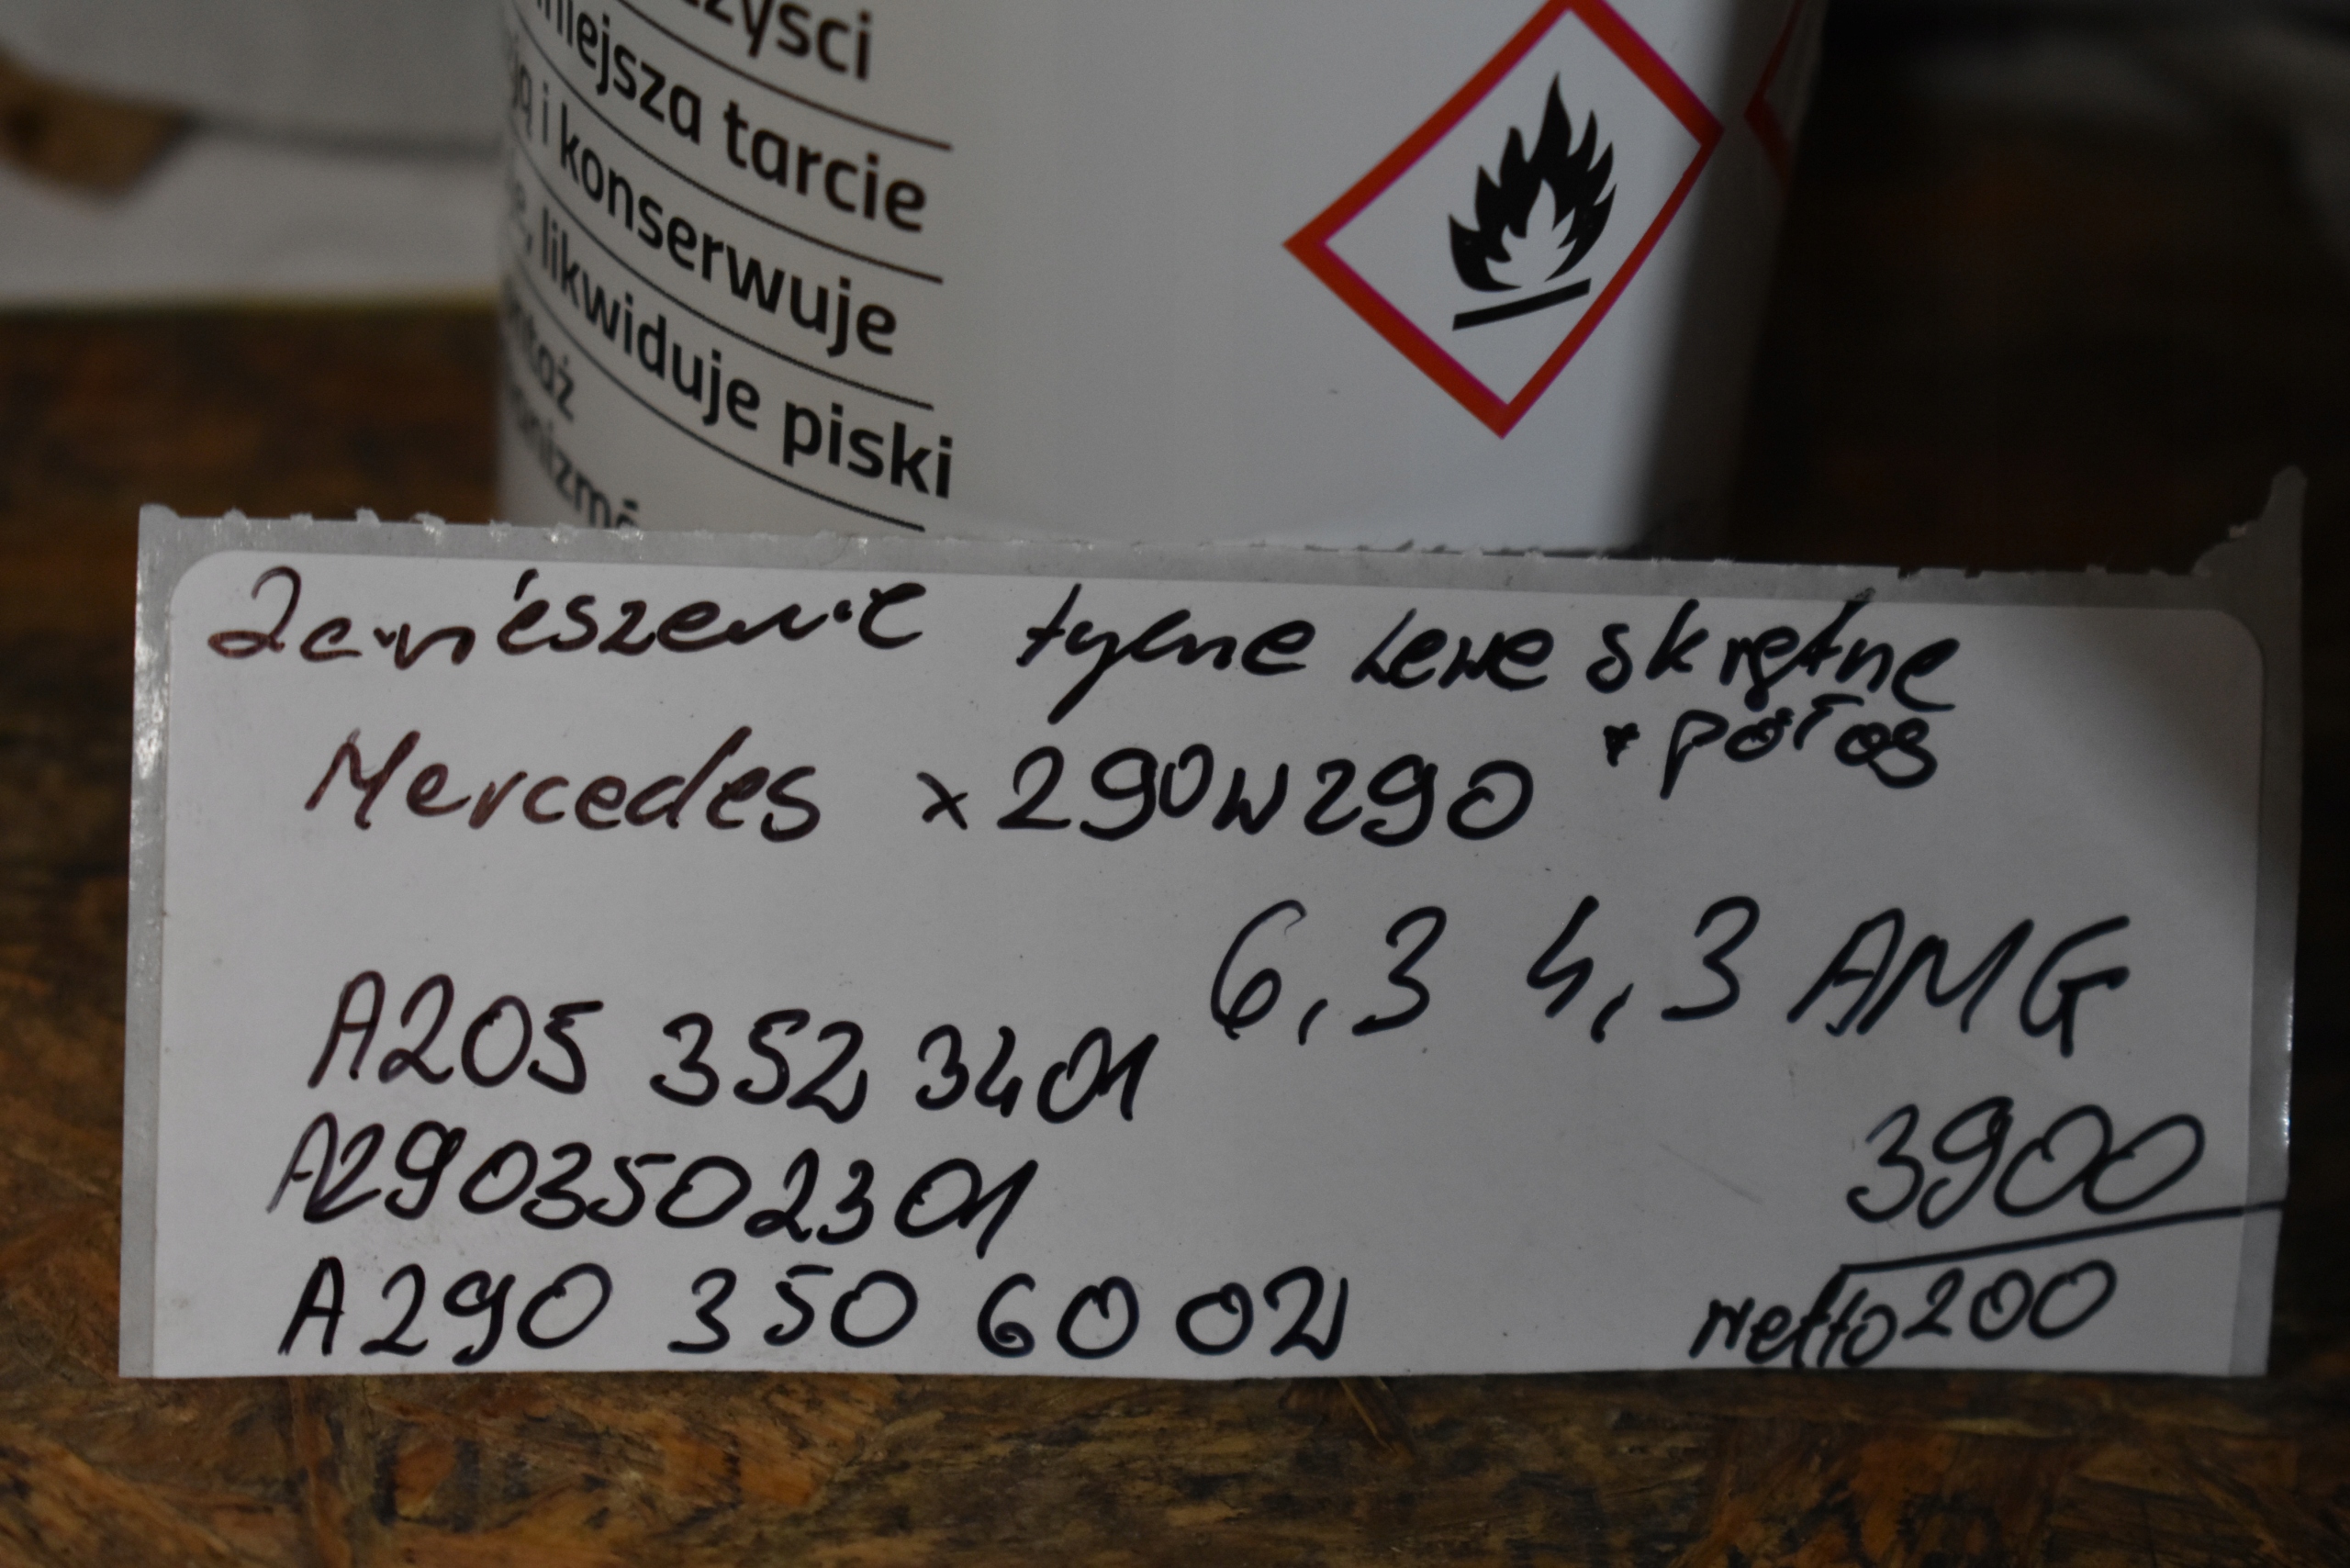 zyści
niejsza tarcie
ją i konserwuje
e, likwiduje piski
ntaż
nizmó
Zawieszenie tylne Lewe skrętne
+ półoś
Mercedes x290W290
6,3 4,3 AMG
A205 352 3401
A2903502301
3900
A290 350 6002
netto 200